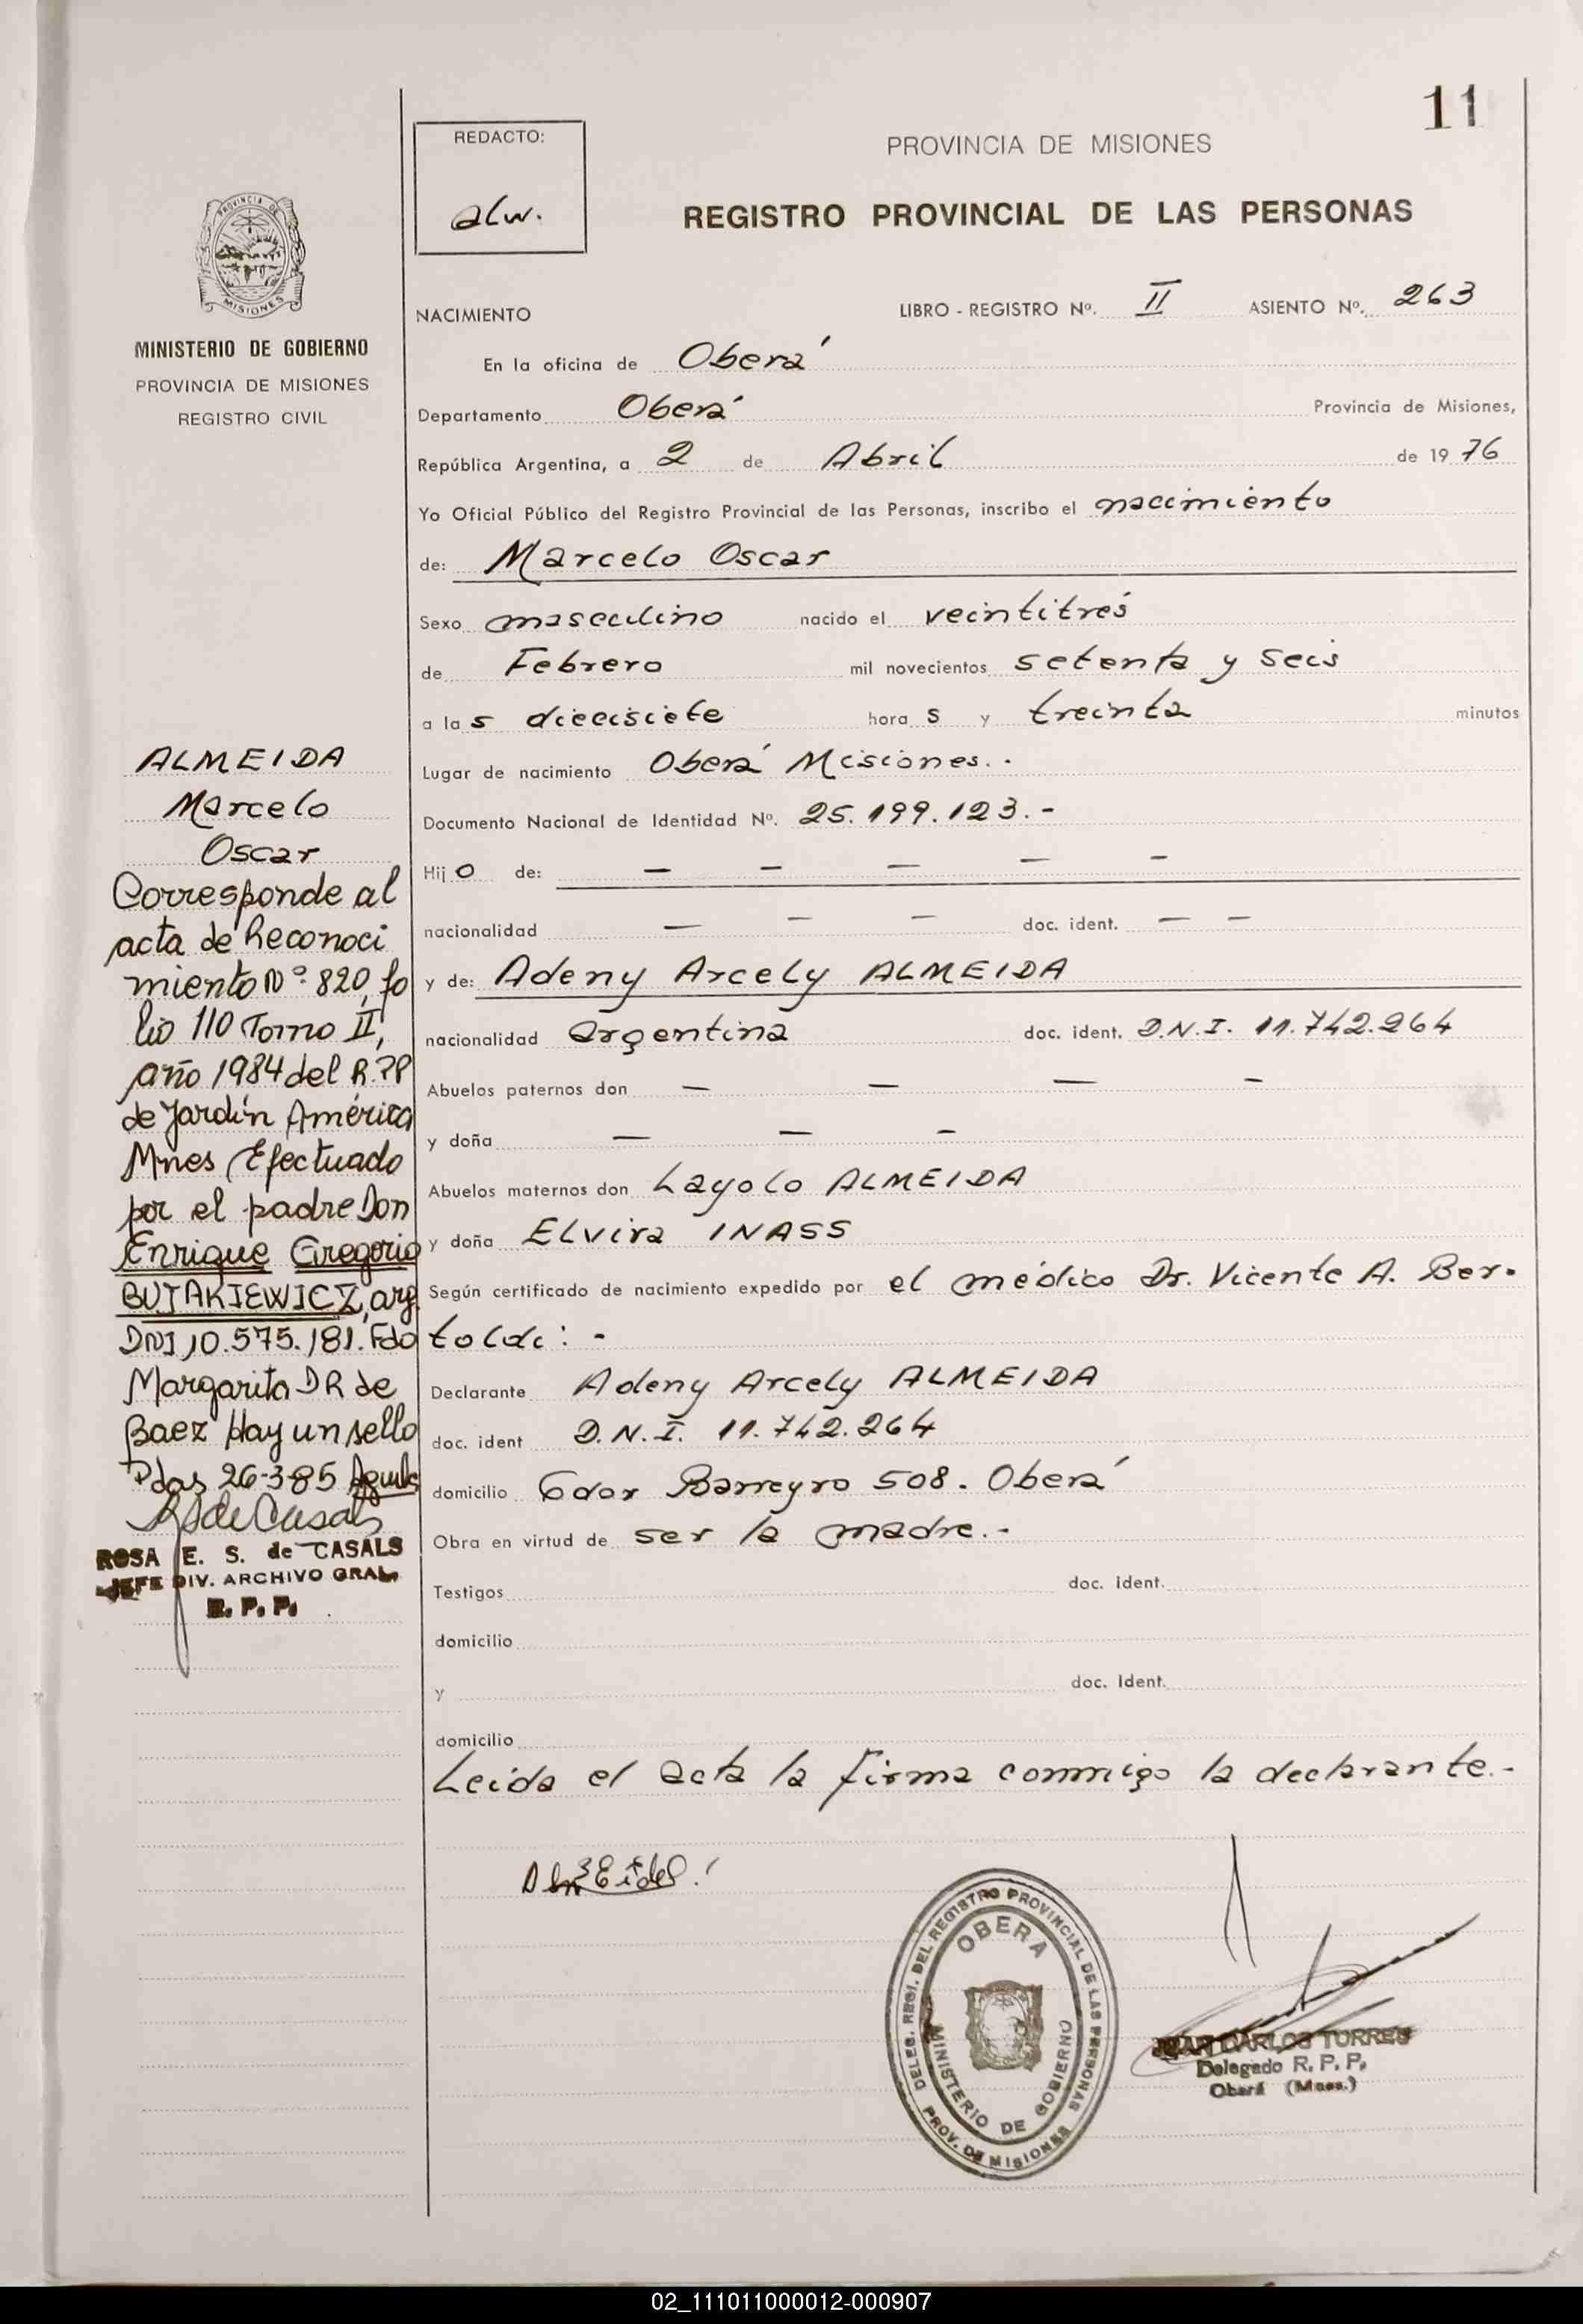 11
REDACTO:
alw.
PROVINCIA DE MISIONES
REGISTRO PROVINCIAL DE LAS PERSONAS
PROVINCIA DE
MISIONES
MINISTERIO DE GOBIERNO
PROVINCIA DE MISIONES
REGISTRO CIVIL
NACIMIENTO LIBRO - REGISTRO Nº. II ASIENTO Nº. 263
En la oficina de Oberá
Departamento Oberá Provincia de Misiones,
República Argentina, a 2 de Abril de 19 76
Yo Oficial Público del Registro Provincial de las Personas, inscribo el nacimiento
de: Marcelo Oscar
Sexo masculino nacido el veintitrés
de Febrero mil novecientos setenta y seis
a la s diecisiete hora s y treinta minutos
Lugar de nacimiento Oberá Misiones.-
Documento Nacional de Identidad Nº. 25.199.123.-
Hij o de: — — — — —
nacionalidad — — — doc. ident. — —
y de: Adeny Arcely ALMEIDA
nacionalidad Argentina doc. ident. D.N.I. 11.742.264
Abuelos paternos don — — — —
y doña — — —
Abuelos maternos don Layolo ALMEIDA
y doña Elvira INASS
Según certificado de nacimiento expedido por el médico Dr. Vicente A. Ber-
toldi: -
Declarante Adeny Arcely ALMEIDA
doc. ident D.N.I. 11.742.264
domicilio Gdor Barreyro 508. Oberá
Obra en virtud de ser la madre.-
Testigos doc. ident.
domicilio
y doc. Ident.
domicilio
Leida el acta la firma conmigo la declarante.-
ALMEIDA
Marcelo
Oscar
Corresponde al
acta de Reconoci
miento Nº 820, fo
lio 110 Tomo II,
año 1984 del R.PP
de Jardín América
Mnes Efectuado
por el padre Don
Enrique Gregorio
BUTAKIEWICZ, arg.
DNI 10.575.181. Fdo
Margarita D R de
Baez Hay un sello
Pdas 26-3-85
ROSA E. S. de CASALS
JEFE DIV. ARCHIVO GRAL
R. P. P.
DELEG. REGI. DEL REGISTRO PROVINCIAL DE LAS PERSONAS
OBERA
MINISTERIO DE GOBIERNO
PROV. DE MISIONES
JUAN CARLOS TORRES
Delegado R. P. P.
Oberá (Mnes.)
02_111011000012-000907